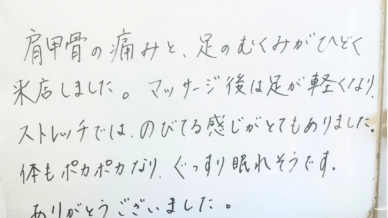 肩甲骨の痛みと、足のむくみがひどく
来店しました。マッサージ後は足が軽くなり、
ストレッチでは、のびてる感じがとてもありました。
体もポカポカなり、ぐっすり眠れそうです。
ありがとうございました。